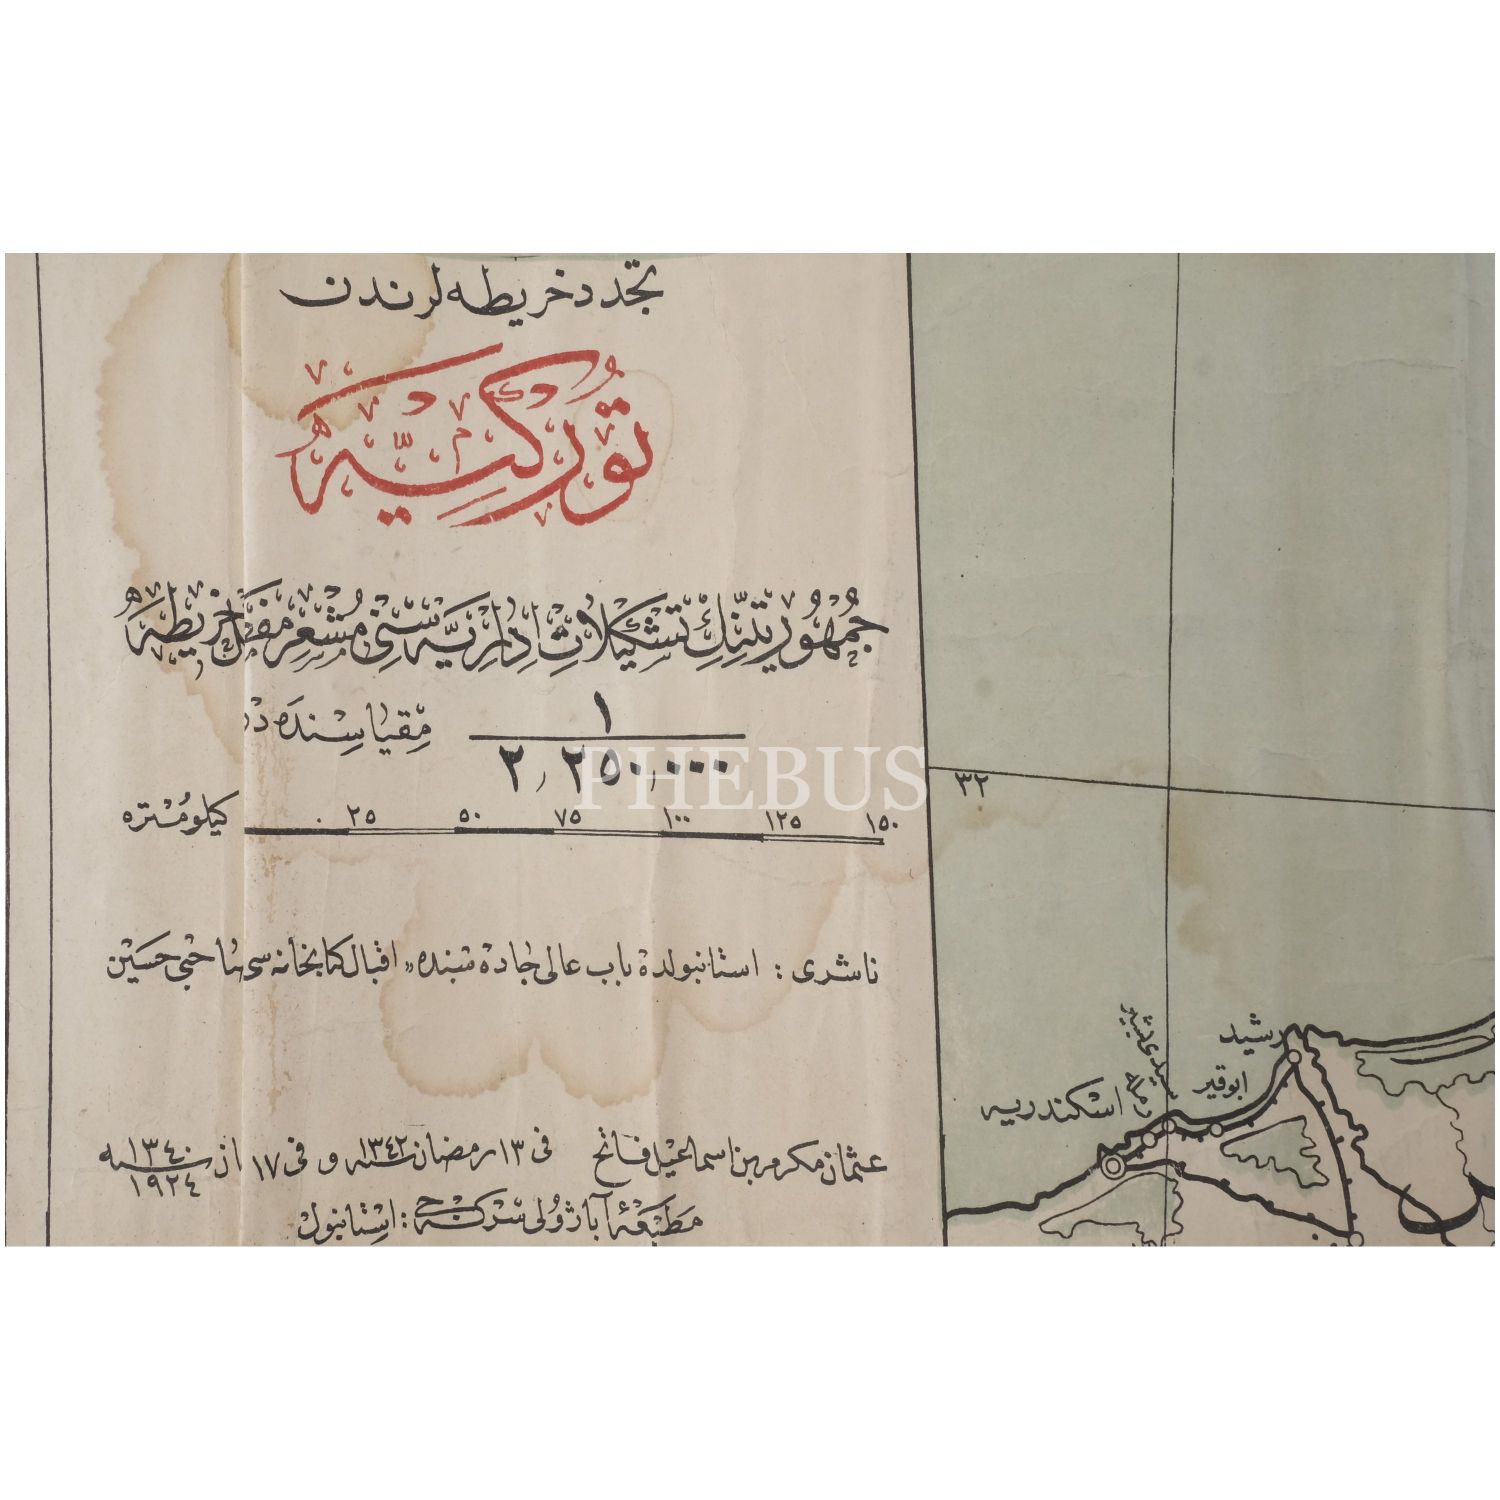 تجدد خريطه لرندن
توركيه
جمهوريتنك تشكيلات اداريه سنى مشعر مفصل خريطه
مقياسنده در ١ / ٢,٢٥٠,٠٠٠
PHEBUS
كيلومتره ٠ ٢٥ ٥٠ ٧٥ ١٠٠ ١٢٥ ١٥٠
ناشرى : استانبولده باب عالى جاده سنده «اقبال كتابخانه سى صاحبى حسين
عثمان مكرم بن اسماعيل فاتح فى ١٣ رمضان سنه ١٣٤٢ و فى ١٧ سنه ١٣٤٠ / ١٩٢٤
مطبعۀ : استانبول
٣٢
رشيد
ابوقير
سيدى بشير
رمله
اسكندريه